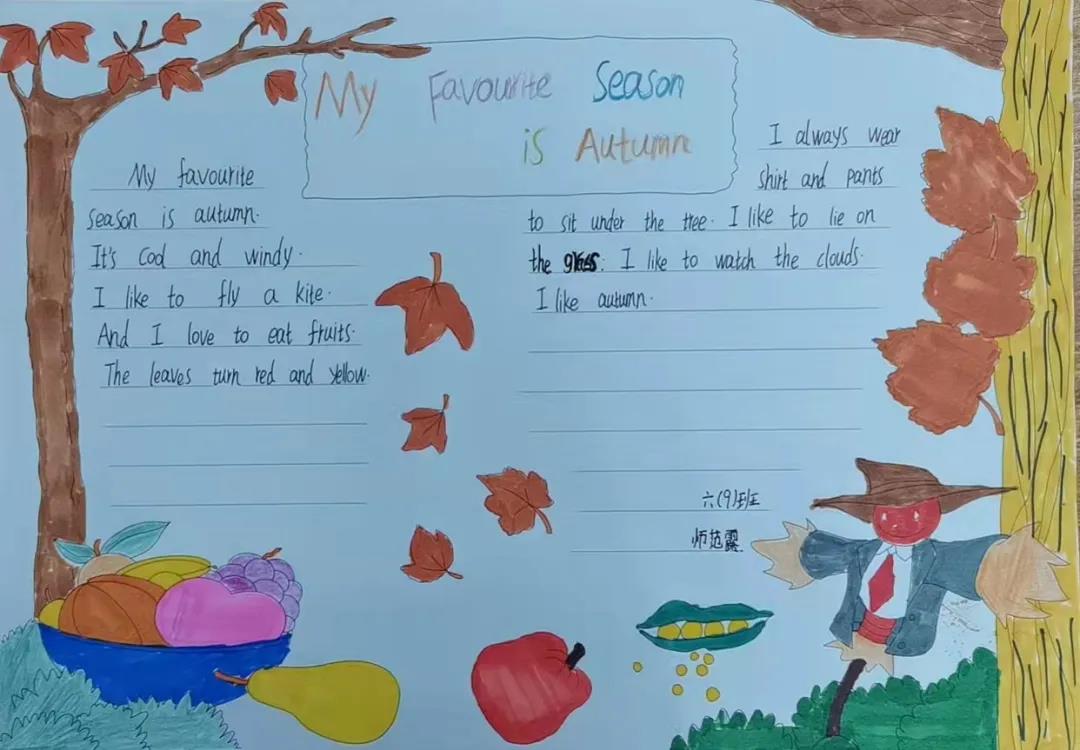 My Favourite Season
is Autumn
My favourite
season is autumn.
It's cool and windy.
I like to fly a kite.
And I love to eat fruits.
The leaves turn red and yellow.
I always wear
shirt and pants
to sit under the tree. I like to lie on
the grass. I like to watch the clouds.
I like autumn.
六(9)班
师范露